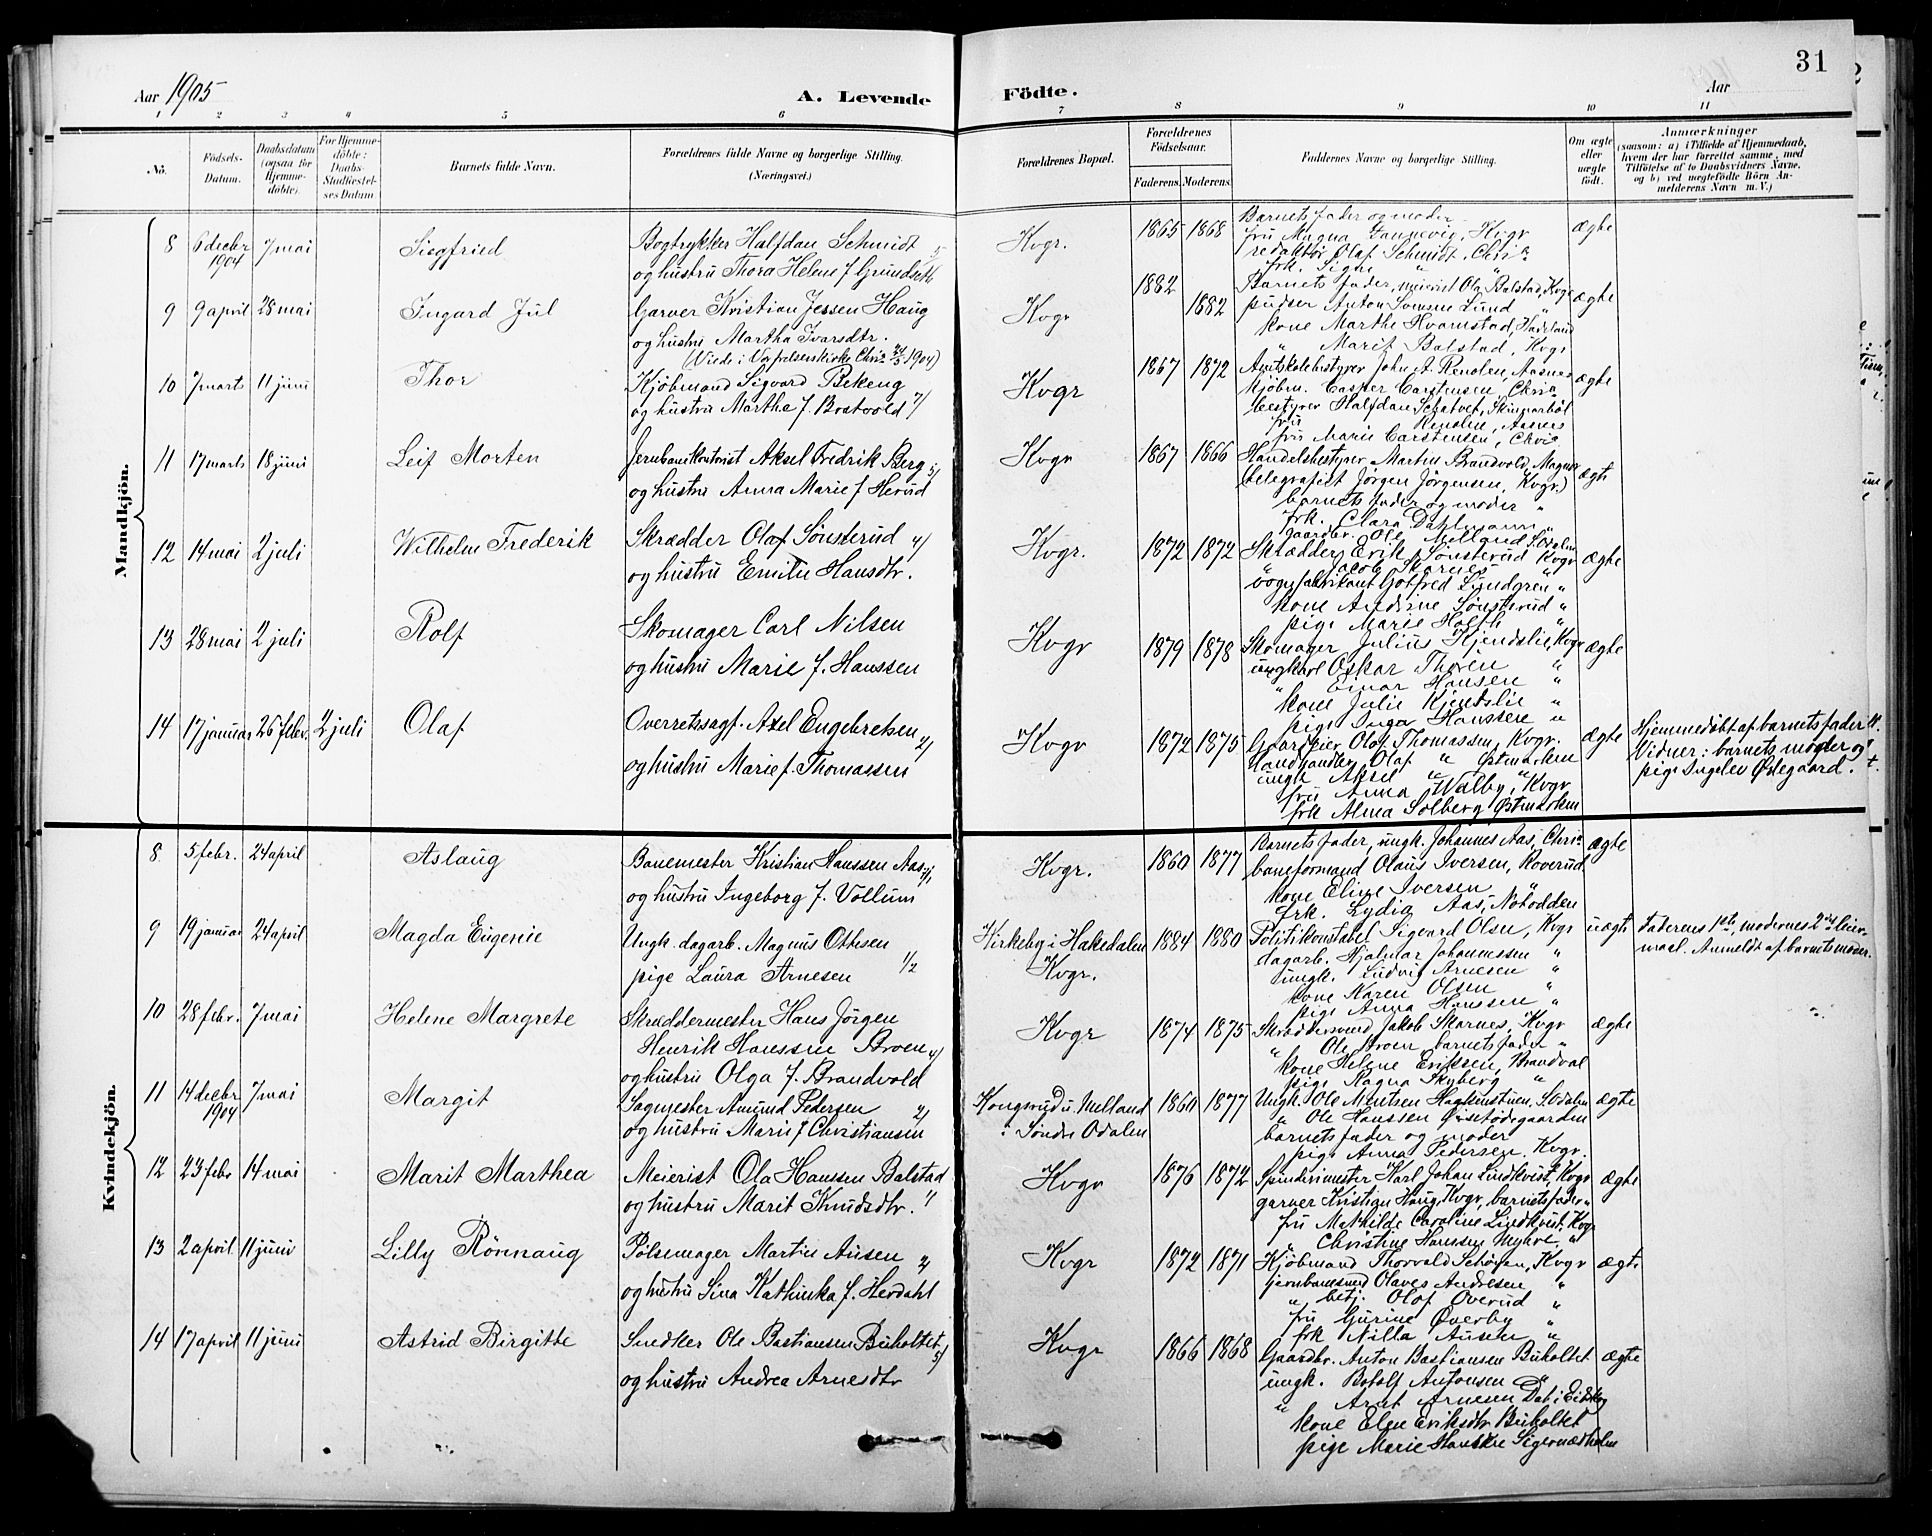 31
Aar 1905
A. Levende Fødte.
Aar
1 2 3 4 5 6 7 8 9 10 11
No.
Fødsels-
Datum.
Daabsdatum
(ogsaa for
Hjemme-
døbte).
For Hjemme-
døbte:
Daabs-
Stadfæstel-
ses Datum
Barnets fulde Navn.
Forældrenes fulde Navne og borgerlige Stilling.
(Næringsvei.)
Forældrenes Bopæl.
Forældrenes
Fødselsaar.
Faderens. Moderens.
Faddernes Navne og borgerlige Stilling.
Om ægte
eller
uægte
født.
Anmærkninger
(saasom: a) i Tilfælde af Hjemmedaab,
hvem der har forrettet samme, med
Tilføielse af to Daabsvidners Navne.
og b) ved uægtefødte Børn An-
melderens Navn m. V.)
Mandkjøn.
8 6 decbr 1904 7 mai Siegfried
Bogtrykker Halfdan Schmidt
og hustru Thora Helene f. Grundseth
Kvgr. 1865 1868
Barnets fader og moder
fru Magna Fannevig, Kvgr
redaktør Olaf Schmidt, Chria
frk. Signe " "
ægte
9 9 april 28 mai Ingard Jul
Garver Kristian Jessen Haug
og hustru Martha Ivarsdtr.
(Viede i Vor frelserskirke Chria 1904)
Kvgr 1882 1882
Barnets fader, meierist Ola Balstad, Kvgr
pudser Anton Lund "
kone Marthe Hvamstad, Hadeland
" Marit Balstad, Kvgr
ægte
10 7 marts 11 juni Thor
Kjøbmand Sigvard Bekeng
og hustru Martha f. Bratvold 7/
Kvgr 1867 1872
Amtskolebestyrer John A. Renolen, Aasnes
Kjøbm. Casper Carstensen, Chria
bestyrer Halfdan Schatvet, Skinnarbøl
fru Renolen, Aasnes
fru Marie Carstensen, Chria
ægte
11 17 marts 18 juni Leif Morten
Jernbanekontorist Aksel Fredrik Berg 5/
og hustru Anna Marie f. Herud
Kvgr 1867 1866
Handelsbestyrer Martin Brandvold, Magnor
(telegrafist Jørgen Jørgensen, Kvgr.)
barnets fader og moder "
frk. Clara Dahlmann "
ægte
12 14 mai 2 juli Wilhelm Frederik
Skrædder Olaf Sønsterud 4/
og hustru Emilie Hansdtr.
Kvgr. 1872 1872
Gaardbr. Ole Melland S. Odalen
Skrædder Erik Sønsterud Kvgr
" Jacob Skarnes "
vognfabrikant Gotfred Lundgren "
kone Andrine Sønsterud "
pige Marie Holth "
ægte
13 28 mai 2 juli Rolf
Skomager Carl Nilsen
og hustru Marie f. Hanssen
Kvgr 1879 1878
Skomager Julius Kjendslie, Kvgr
ungkarl Oskar Thoren "
" Einar Hansen "
kone Julie Kjendslie "
pige Inga Hanssen "
ægte
14 17 januar 26 febr. 2 juli Olaf
Overretssagf. Axel Engebretsen 2/
og hustru Marie f. Thomassen
Kvgr 1872 1875
Gaardeier Olof Thomassen, Kvgr.
Landhandler Olaf " Østmarken
ungk Aksel " "
fru Anna Walby, Kvgr
frk Alma Solberg Østmarken
ægte
Hjemmedøbt af barnets fader
Vidner: barnets moder og
pige Ingelev Østgaard.
Kvindekjøn.
8 5 febr. 24 april Aslaug
Banemester Kristian Hanssen Aas
og hustru Ingeborg f. Vollum
Kvgr. 1860 1877
Barnets fader, ungk. Johannes Aas, Chria
baneformand Olaus Iversen, Roverud
kone Eline Iversen
frk. Lydia Aas, Notodden
ægte
9 19 januar 24 april Magda Eugenie
Ungk. dagarb. Magnus Ottesen
pige Laura Arnesen 1/2
Kirkeby i Hakedalen
Kvgr.
1884 1880
Politikonstabel Sigvard Olsen, Kvgr
dagarb. Hjalmar Johannessen "
ungk. Ludvig Arnesen "
kone Karen Olsen "
pige Anna Hanssen "
uægte
Faderens 1ste, moderens 2det leier-
maal. Anmeldt af barnets moder.
10 28 febr. 7 mai Helene Margrete
Skræddermester Hans Jørgen
Henrik Hanssen Broen 4/
og hustru Olga f. Brandvold
Kvgr 1874 1875
Skræddersvend Jakob Skarnes, Kvgr
" Ole Broen, barnets fader "
kone Helene Eriksen, Brandval
pige Ragna Skyberg "
ægte
11 14 decbr 1904 7 mai Margit
Sagmester Amund Pedersen 2/
og hustru Marie f Christiansen
Kongsrud u. Melland
i Søndre Odalen
1860 1877
Ungk. Ole Mentsen Haakenstuen, S. Odalen
" Ole Hanssen
barnets fader og moder
pige Anna Pedersen, Kvgr.
ægte
12 23 febr 14 mai Marit Marthea
Meierist Ola Hanssen Balstad
og hustru Marit Knudsdtr.
Kvgr 1876 1872
Spinderimester Karl Johan Lindkvist, Kvgr
garver Kristian Haug, Kvgr, barnets fader "
fru Mathilde Caroline Lindkvist, Kvgr
" Christine Hanssen Myhre "
ægte
13 2 april 11 juni Lilly Rönnaug
Pølsemager Martin Ausen 2/
og hustru Lina Kathinka f. Herdahl
Kvgr 1872 1871
Kjøbmand Thorvald Schøyen, Kvgr
jernbanesmed Olaves Andresen "
" betj. Olof Overud "
fru Gurine Øverby "
frk Nilla Ausen "
ægte
14 17 april 11 juni Astrid Birgitte
Snedker Ole Bastiansen Buholtet 5/
og hustru Andrea Arnesdtr
Kvgr 1866 1868
Gaardbr. Anton Bastiansen Buholtet
ungk. Botolf Antonsen "
" Arnt Arnesen Dal i Eidskog
kone Elen Eriksdtr Buholtet
pige Marie Hanssen Sigernæsholm
ægte